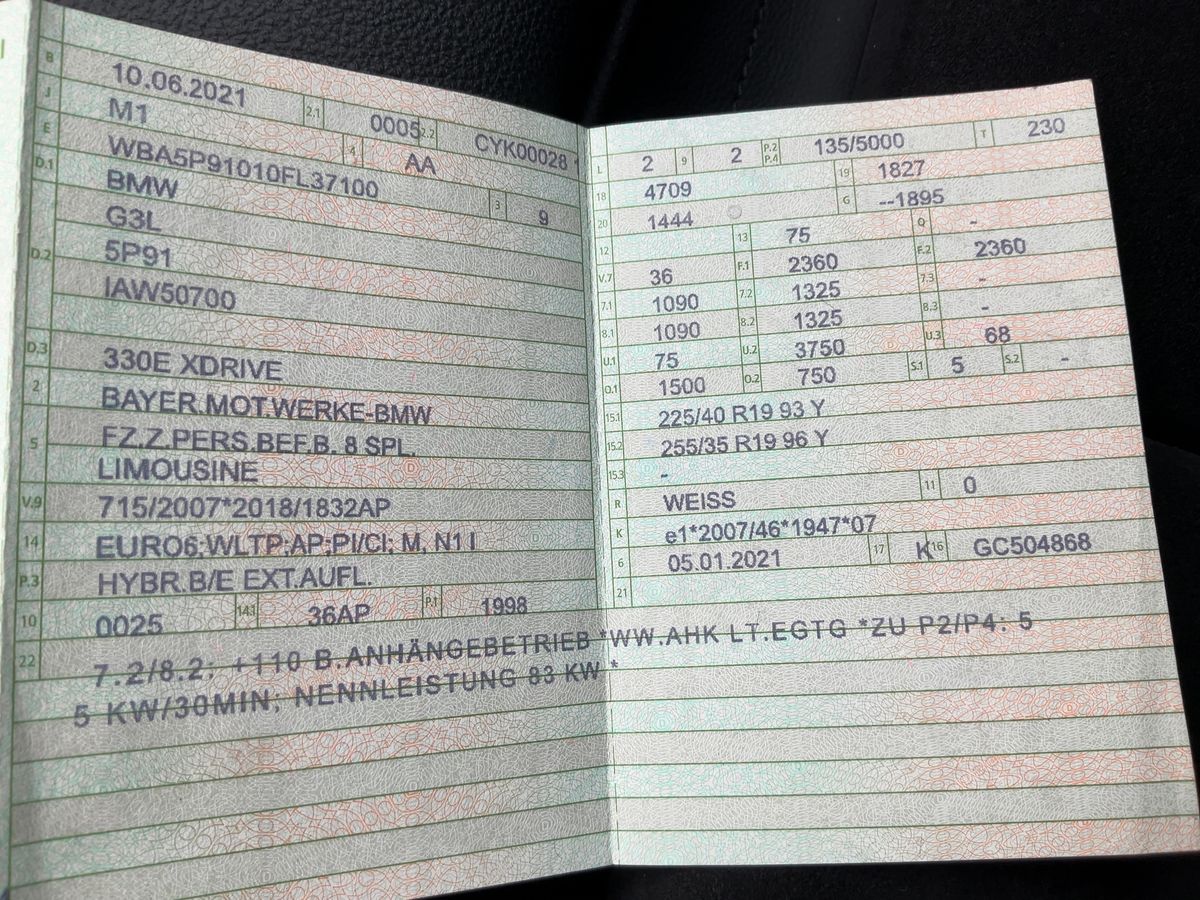 B 10.06.2021 2.1 0005 2.2 CYK00028
J M1 4 AA
E WBA5P91010FL37100 3 9
D.1 BMW
D.2 G3L
5P91
IAW50700
D.3 330E XDRIVE
2 BAYER.MOT.WERKE-BMW
5 FZ.Z.PERS.BEF.B. 8 SPL.
LIMOUSINE
V.9 715/2007*2018/1832AP
14 EURO6;WLTP;AP;PI/CI; M, N1 I
P.3 HYBR.B/E EXT.AUFL.
10 0025 14.1 36AP P.1 1998
L 2 9 2 P.2 P.4 135/5000 T 230
18 4709 19 1827
20 1444 G --1895
12 13 75 Q -
V.7 36 F.1 2360 F.2 2360
7.1 1090 7.2 1325 7.3 -
8.1 1090 8.2 1325 8.3 -
U.1 75 U.2 3750 U.3 68
O.1 1500 O.2 750 S.1 5 S.2 -
15.1 225/40 R19 93 Y
15.2 255/35 R19 96 Y
15.3 -
R WEISS 11 0
K e1*2007/46*1947*07
6 05.01.2021 17 K 16 GC504868
21
22 7.2/8.2: +110 B.ANHÄNGEBETRIEB *WW.AHK LT.EGTG *ZU P2/P4: 5
5 KW/30MIN; NENNLEISTUNG 83 KW *